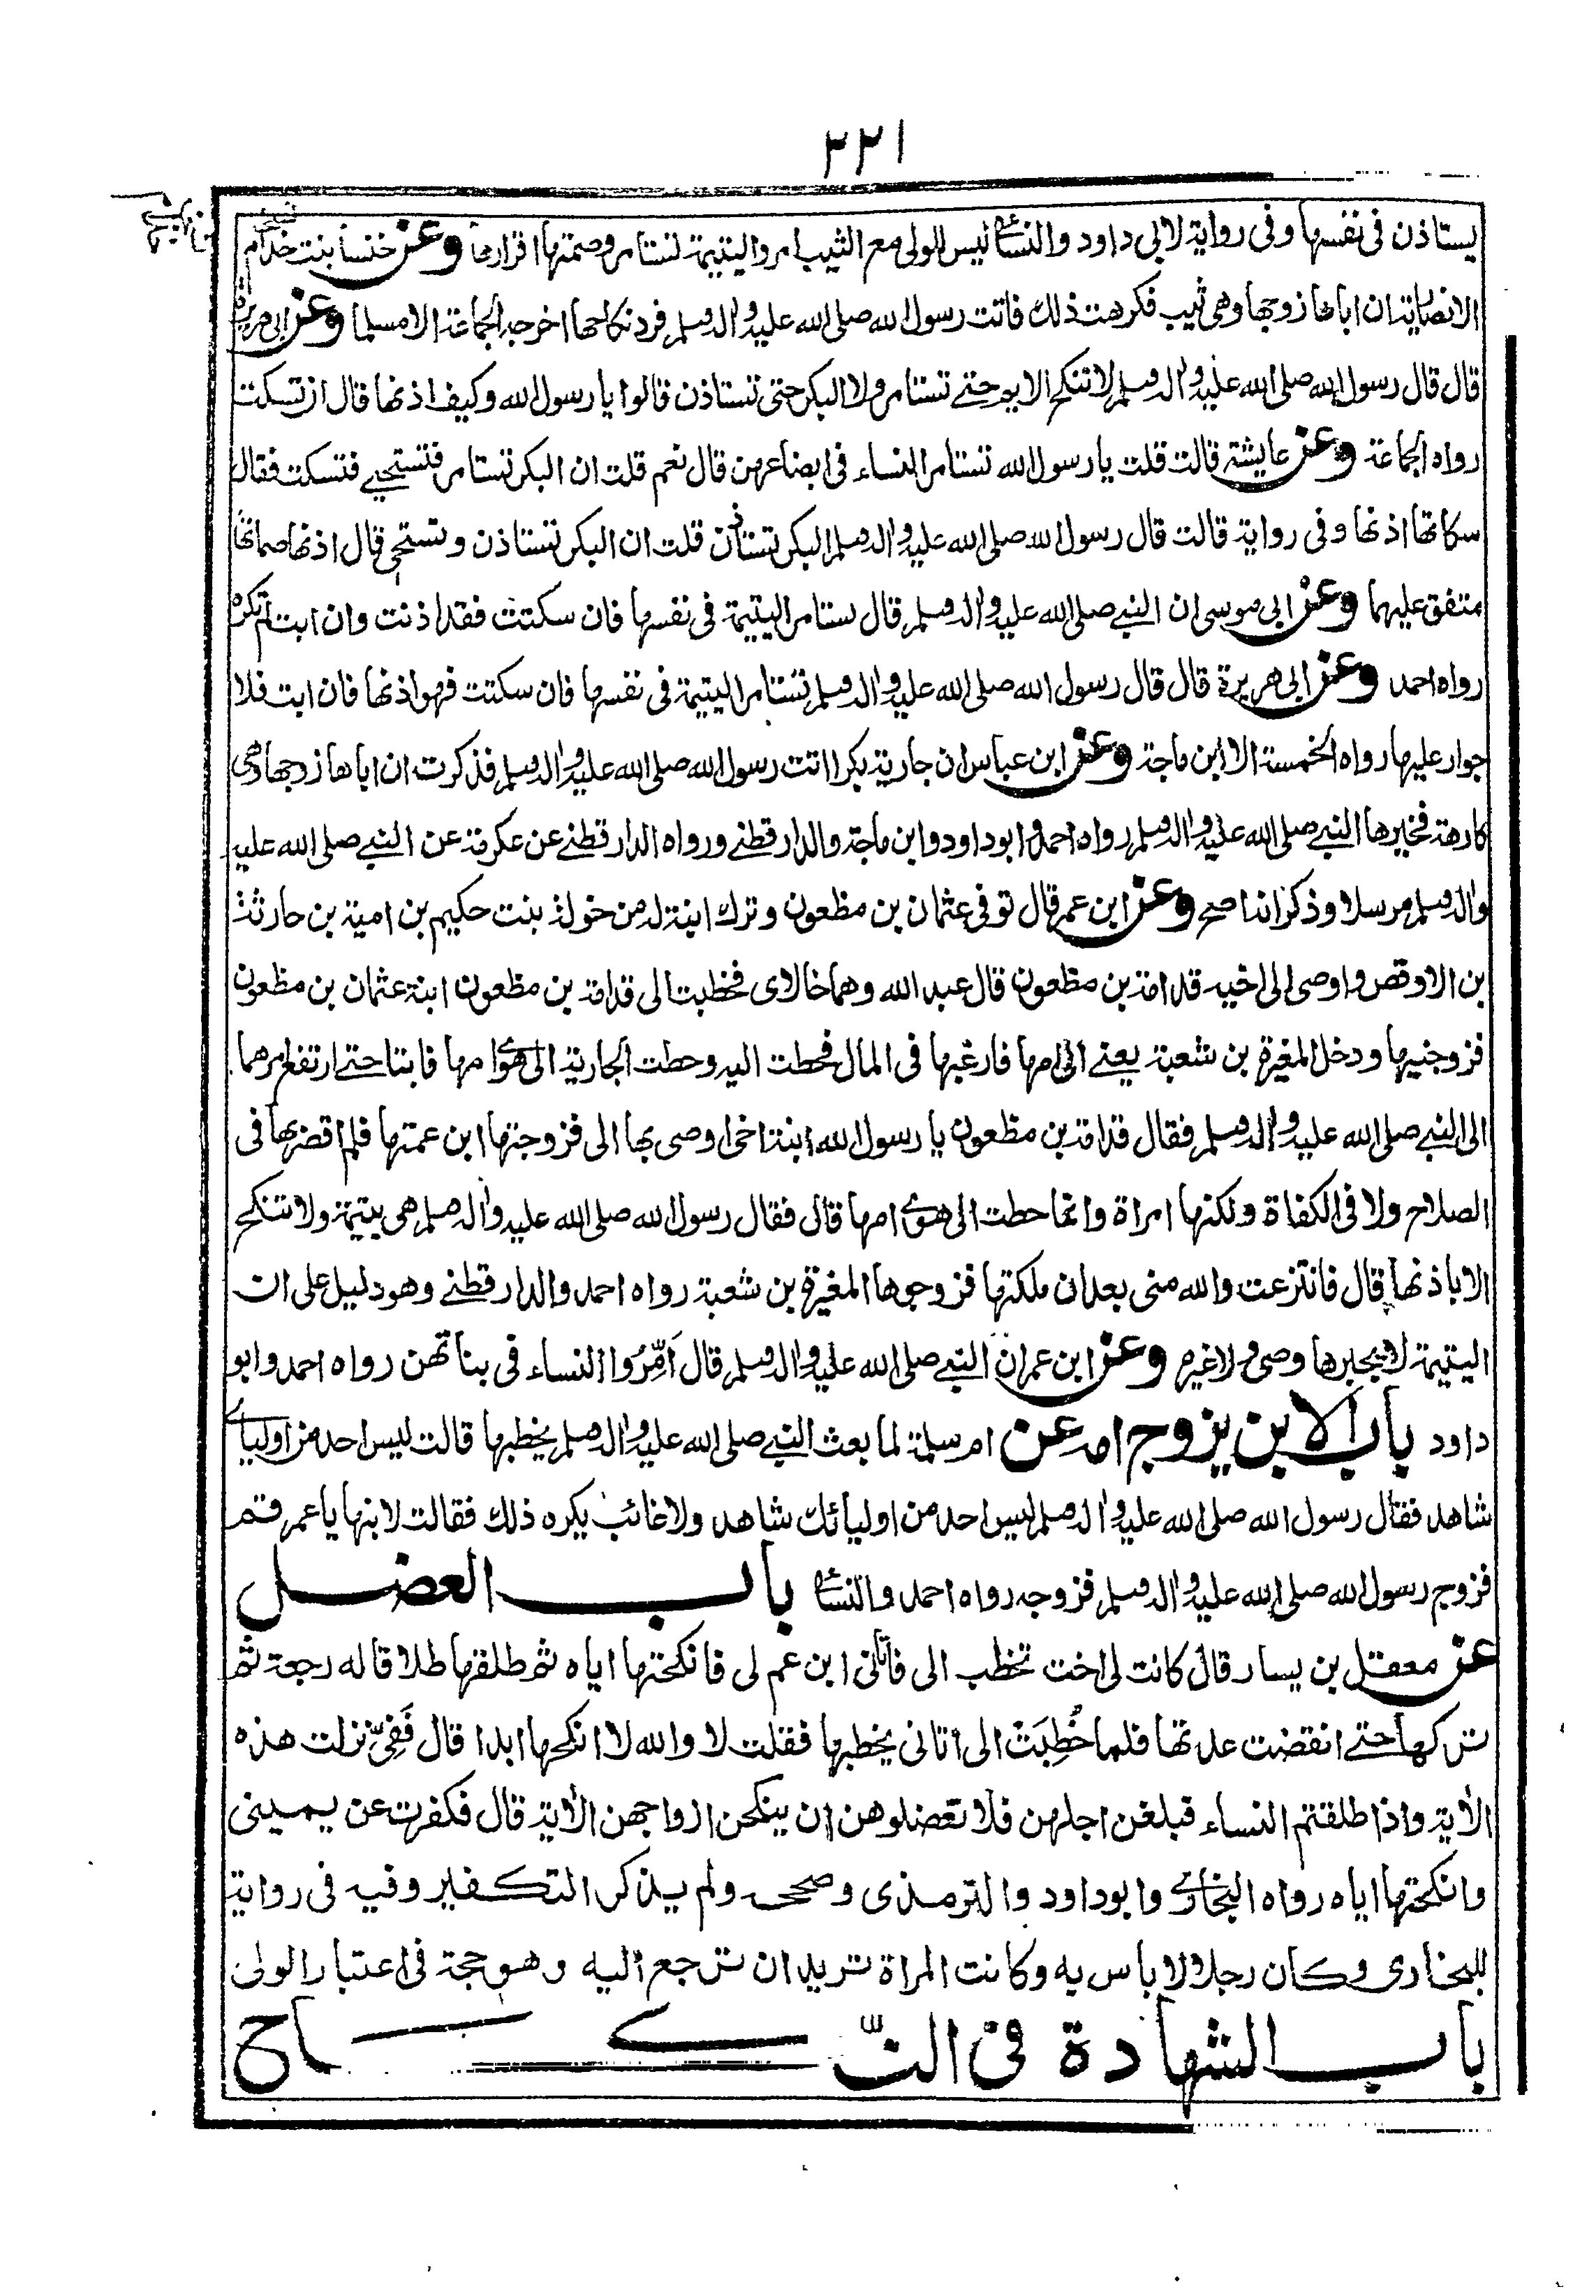 ٣٢١
يستاذن فى نفسها وفى رواية لابى داود والنسائى ليس للولى مع الثيب امر واليتيمة تستامر وصمتها اقرارها وعن خنسا بنت خدام
الانصارية ان اباها زوجها وهى ثيب فكرهت ذلك فاتت رسول الله صلى الله عليه واله وسلم فرد نكاحها اخرجه الجماعة الا مسلما وعن ابى هريرة
قال قال رسول الله صلى الله عليه واله وسلم لا تنكح الايم حتے تستامر ولا البكر حتى تستاذن قالوا يا رسول الله وكيف اذنها قال ان تسكت
رواه الجماعة وعن عايشة قالت قلت يا رسول الله تستامر النساء فى ابضاعهن قال نعم قلت ان البكر تستامر فتستحيے فتسكت فقال
سكاتها اذنها وفى رواية قالت قال رسول الله صلى الله عليه واله وسلم البكر تستاذن قلت ان البكر تستاذن وتستحى قال اذنها صماتها
متفق عليهما وعن ابى موسى ان النبے صلى الله عليه واله وسلم قال تستامر اليتيمة فى نفسها فان سكتت فقد اذنت وان ابت لم تكره
رواه احمد وعن ابى هريرة قال قال رسول الله صلى الله عليه واله وسلم تستامر اليتيمة فى نفسها فان سكتت فهو اذنها فان ابت فلا
جواز عليها رواه الخمسة الا ابن ماجة وعن ابن عباس ان جارية بكرا اتت رسول الله صلى الله عليه واله وسلم فذكرت ان اباها زوجها وهى
كارهة فخيرها النبے صلى الله عليه واله وسلم رواه احمد وابو داود وابن ماجة والدارقطنے ورواه الدارقطنے عن عكرمة عن النبے صلى الله عليه
واله وسلم مرسلا وذكر انه اصح وعن ابن عمر قال توفى عثمان بن مظعون وترك ابنة له من خولة بنت حكيم بن امية بن حارثة
بن الاوقص واوصى الى اخيه قدامة بن مظعون قال عبد الله وهما خالاى فخطبت الى قدامة بن مظعون ابنة عثمان بن مظعون
فزوجنيها ودخل المغيرة بن شعبة يعنے الى امها فارغبها فى المال فحطت اليه وحطت الجارية الى هوے امها فابتا حتے ارتفع امرهما
الى النبے صلى الله عليه واله وسلم فقال قدامة بن مظعون يا رسول الله ابنة اخى اوصى بها الى فزوجتها ابن عمتها فلم اقصر بها فى
الصلاح ولا فى الكفاة ولكنها امراة وانما حطت الى هوے امها قال فقال رسول الله صلى الله عليه واله وسلم هى يتيمة ولا تنكح
الا باذنها قال فانتزعت والله منى بعد ان ملكتها فزوجوها المغيرة بن شعبة رواه احمد والدارقطنے وهو دليل على ان
اليتيمة لا يجبرها وصى ولا غيره وعن ابن عمر ان النبے صلى الله عليه واله وسلم قال اَمِّرُوا النساء فى بناتهن رواه احمد وابو
داود باب الابن يزوج امه عن ام سلمة لما بعث النبے صلى الله عليه واله وسلم يخطبها قالت ليس احد من اوليائے
شاهد فقال رسول الله صلى الله عليه واله وسلم ليس احد من اوليائك شاهد ولا غائب يكره ذلك فقالت لابنها يا عمر قم
فزوج رسول الله صلى الله عليه واله وسلم فزوجه رواه احمد والنسائى باب العضل
عن معقل بن يسار قال كانت لى اخت تخطب الى فاتانى ابن عم لى فانكحتها اياه ثم طلقها طلاقا له رجعة ثم
تركها حتے انقضت عدتها فلما خُطِبَتْ الى اتانى يخطبها فقلت لا والله لا انكحها ابدا قال فَفِىَّ نزلت هذه
الاية واذا طلقتم النساء فبلغن اجلهن فلا تعضلوهن ان ينكحن ازواجهن الاية قال فكفرت عن يمينى
وانكحتها اياه رواه البخارے وابو داود والترمذى وصححه ولم يذكر التكفير وفيه فى رواية
للبخارى وكان رجلا لا باس به وكانت المراة تريد ان ترجع اليه وهو حجة فى اعتبار الولى
باب الشهادة فى النّكاح